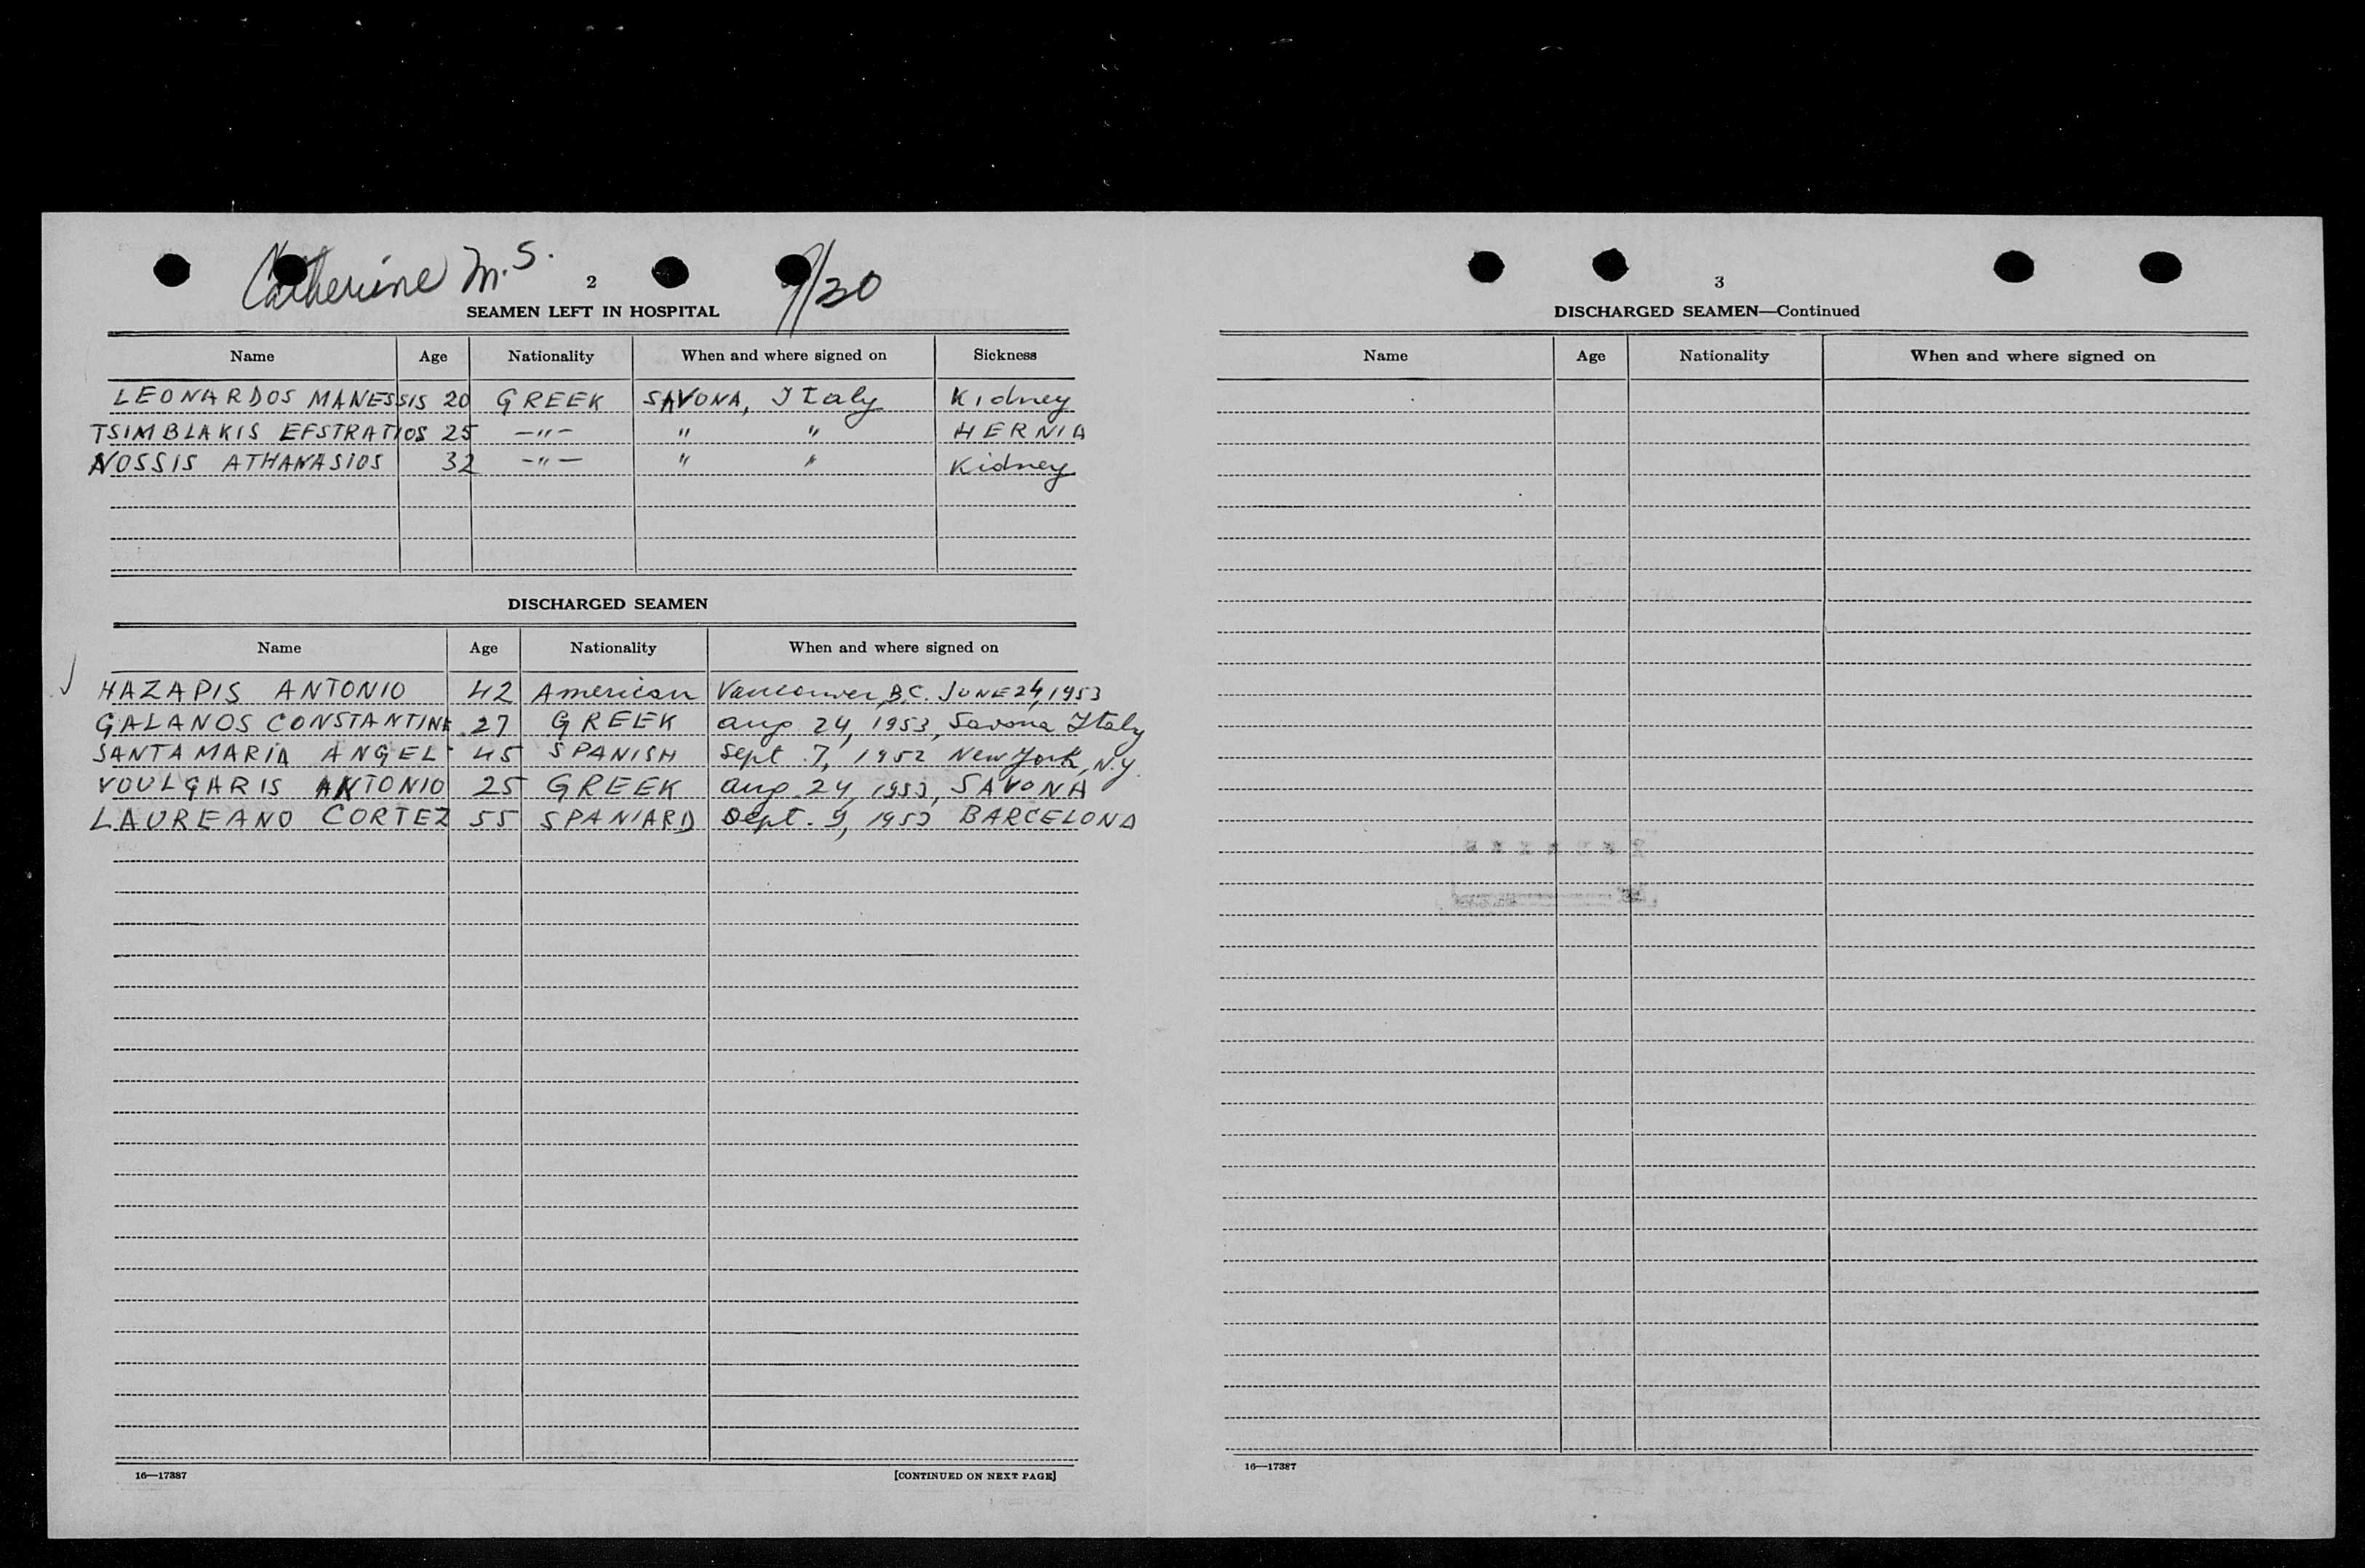 Catherine M.S. 9/30
2
SEAMEN LEFT IN HOSPITAL
Name Age Nationality When and where signed on Sickness
LEONARDOS MANESSIS 20 GREEK SAVONA, Italy Kidney
TSIMBLAKIS EFSTRATIOS 25 —"— " " HERNIA
NOSSIS ATHANASIOS 32 —"— " " Kidney
DISCHARGED SEAMEN
Name Age Nationality When and where signed on
HAZAPIS ANTONIO 42 American Vancouver, B.C. JUNE 24, 1953
GALANOS CONSTANTINE 27 GREEK aug. 24, 1953, Savona Italy
SANTAMARIA ANGEL 45 SPANISH Sept. 7, 1952 New York, N.Y.
VOULGARIS ANTONIO 25 GREEK aug. 24, 1953, SAVONA
LAUREANO CORTEZ 55 SPANIARD Sept. 9, 1953 BARCELONA
16—17387 [CONTINUED ON NEXT PAGE]
3
DISCHARGED SEAMEN—Continued
Name Age Nationality When and where signed on
16—17387